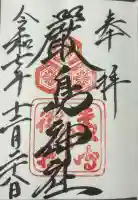 奉拝
嚴島神社
令和六年十二月二六日